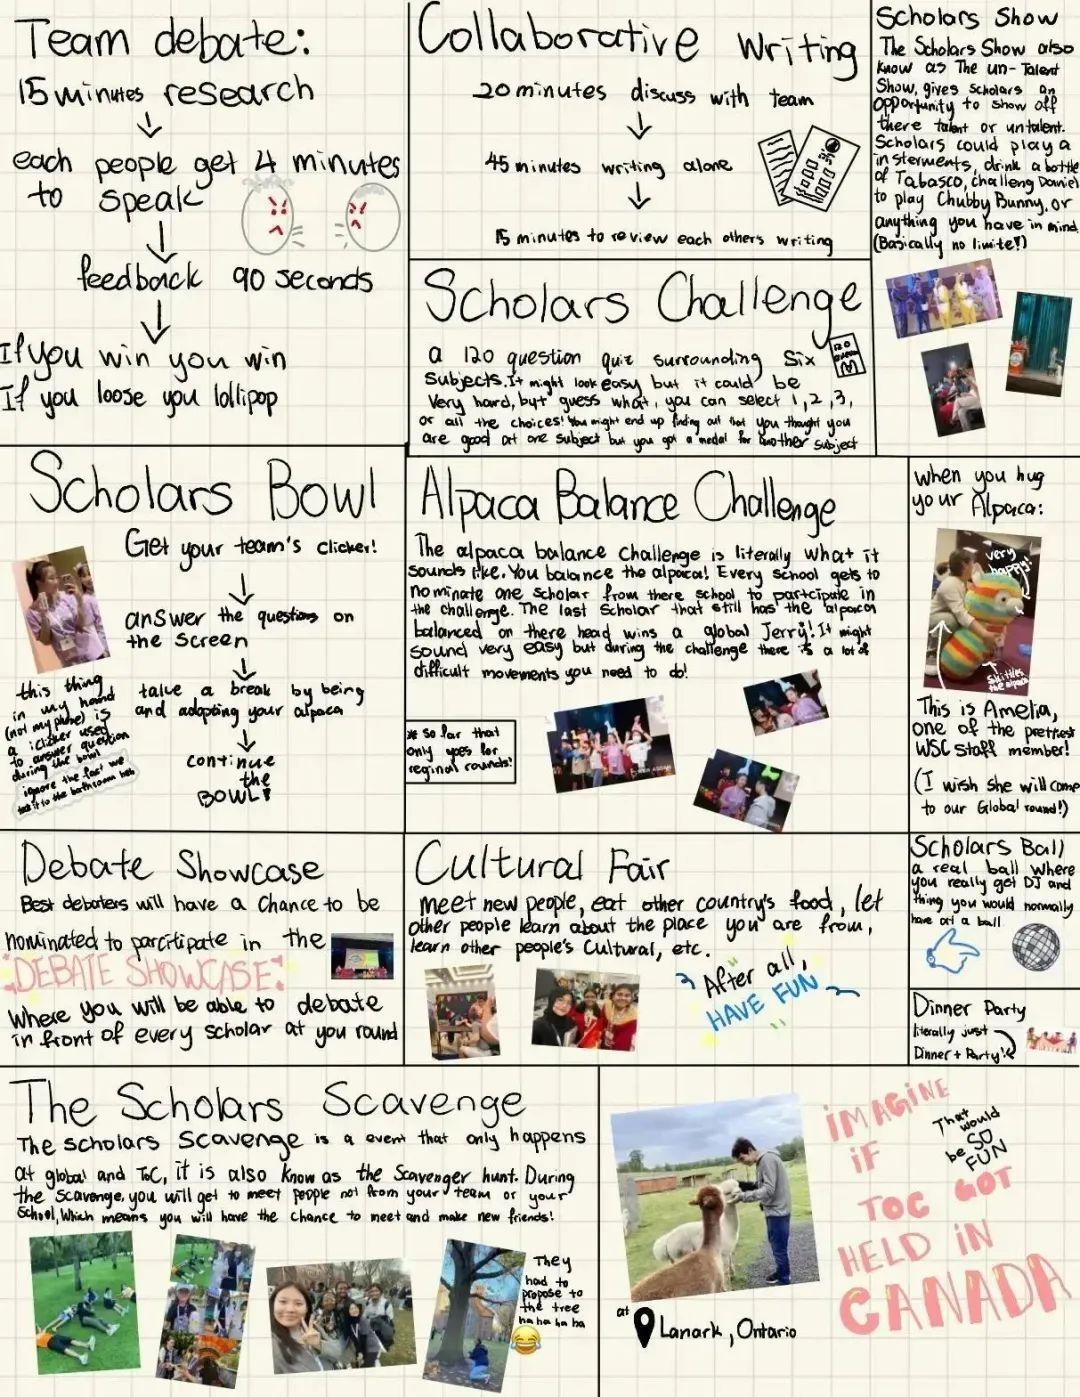 Team debate:
15 minutes research
each people get 4 minutes
to speak
feedback 90 seconds
If you win you win
If you loose you lollipop
Collaborative Writing
20 minutes discuss with team
45 minutes writing alone
15 minutes to review each others writing
Scholars Show
The Scholars Show also
know as The un-Talent
Show, gives Scholars an
opportunity to show off
there talent or untalent.
Scholars could play a
insterments, drink a bottle
of Tabasco, challeng Daniel
to play Chubby Bunny, or
anything you have in mind
(Basically no limite!)
Scholars Challenge
a 120 question quiz surrounding Six
Subjects. It might look easy but it could be
Very hard, but guess what, you can select 1, 2, 3,
or all the choices! You might end up finding out that you thought you
are good at one subject but you got a medal for another subject
Scholars Bowl
Get your team's clicker!
answer the questions on
the screen
take a break by being
and adopting your alpaca
continue
the
BOWL!
this thing
in my hand
(not my phone) is
a iclicker used
to answer question
during the bowl
ignore the fact we
took it to the bathroom heh
Alpaca Balance Challenge
The alpaca balance challenge is literally what it
sounds like. You balance the alpaca! Every school gets to
nominate one scholar from there school to partcipate in
the challenge. The last Scholar that still has the alpaca
balanced on there head wins a global Jerry! It might
sound very easy but during the challenge there is a lot of
difficult movements you need to do!
* So far that
only goes for
reginal rounds!
when you hug
your Alpaca:
very
happy!
Skittles
the alpaca
This is Amelia,
one of the prettiest
WSC staff member!
(I wish she will come
to our Global round!)
Debate Showcase
Best debaters will have a chance to be
nominated to parcitipate in the
DEBATE SHOWCASE!
Where you will be able to debate
in front of every scholar at you round
Cultural Fair
meet new people, eat other country's food, let
other people learn about the place you are from,
learn other people's Cultural, etc.
After all,
HAVE FUN
Scholars Ball
a real ball where
you really get DJ and
thing you would normally
have at a ball
Dinner Party
literally just
Dinner + Party!
The Scholars Scavenge
The scholars Scavenge is a event that only happens
at global and ToC, it is also know as the Scavenger hunt. During
the scavenge, you will get to meet people not from your team or your
School, Which means you will have the chance to meet and make new friends!
They
had to
propose to
the tree
ha ha ha ha
at
Lanark, Ontario
IMAGINE
IF
TOC GOT
HELD IN
CANADA
That would
be SO
FUN